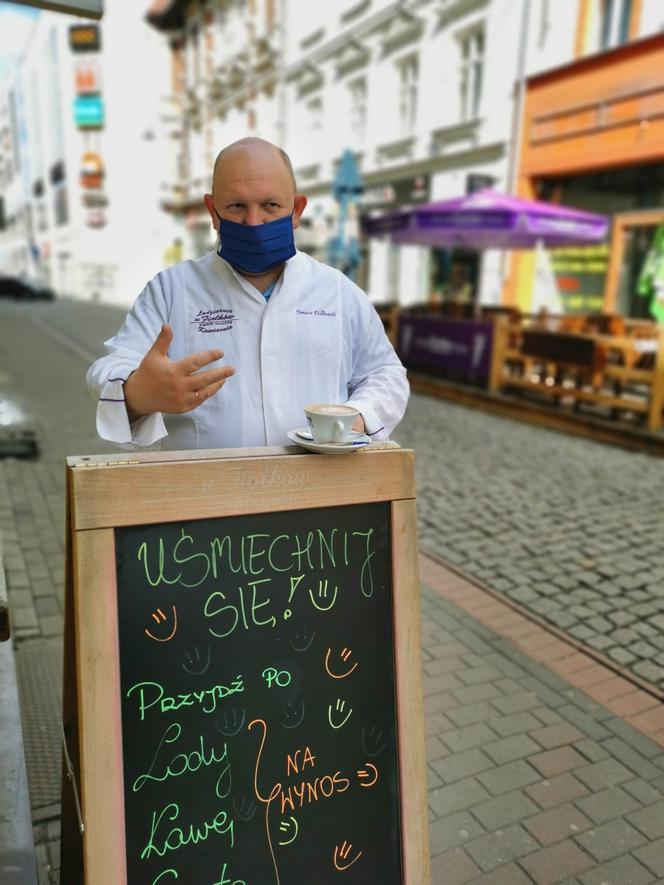 Lodziarnia
u Fiołków
Kawiarnia
u Fiołków
UŚMIECHNIJ
SIĘ!
PRZYJDŹ PO
Lody
Kawę
NA
WYNOS